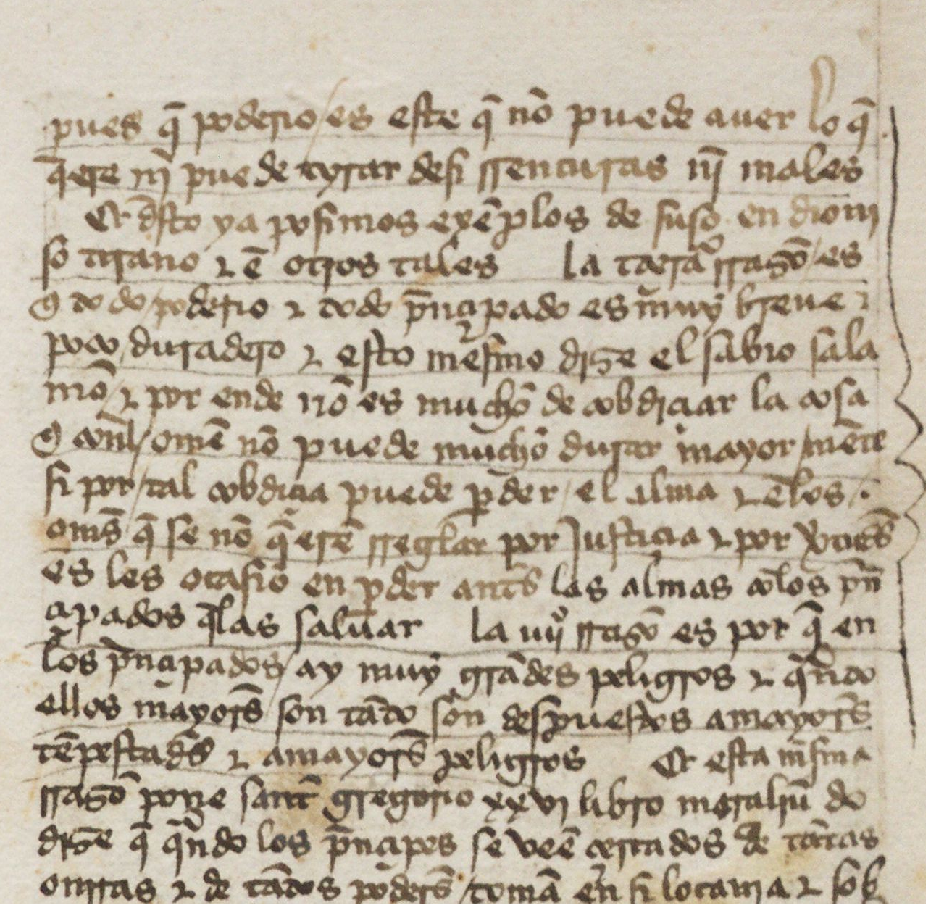 pues q̄ poderio es este q̄ nō puede auer lo q̄
q̄ere nj̄ puede tyrar de si rrencuras nj̄ males
Et d̄sto ya posimos exēplos de suso en dioni
sio tirano ⁊ ē otros tales la tarçā rrazō es
q̄ todo poderio ⁊ todo p̄nçipado es muy breue ⁊
poco duradero ⁊ esto mesmo dize el sabio sala
mō ⁊ por ende nō es mucho de cobdiçiar la cosa
q̄ omē nō puede mucho durar mayor mēte
si por tal cobdiçia puede p̄der el alma ⁊ ēlos
om̄s q̄ se nō q̄eren rreglar por justiçia ⁊ por
es les ocasiō en p̄der ant̄s las almas cōlos p̄n
çipados q̄ las saluar la iiijᵃ rrazō es por q̄ en
los p̄nçipados ay muy grādes peligros ⁊ q̄ndo
ellos mayor̄s son tāto son despuestos a mayor̄s
tēpestad̄s ⁊ a mayor̄s peligros Et esta m̄sma
rrazō pone sant gregorio xxvi libro moraliū do
dize q̄ q̄ndo los p̄nçipes se veē çercados de tātas
onrras ⁊ de tātos poder̄s tomā en si loçania ⁊ sob̄